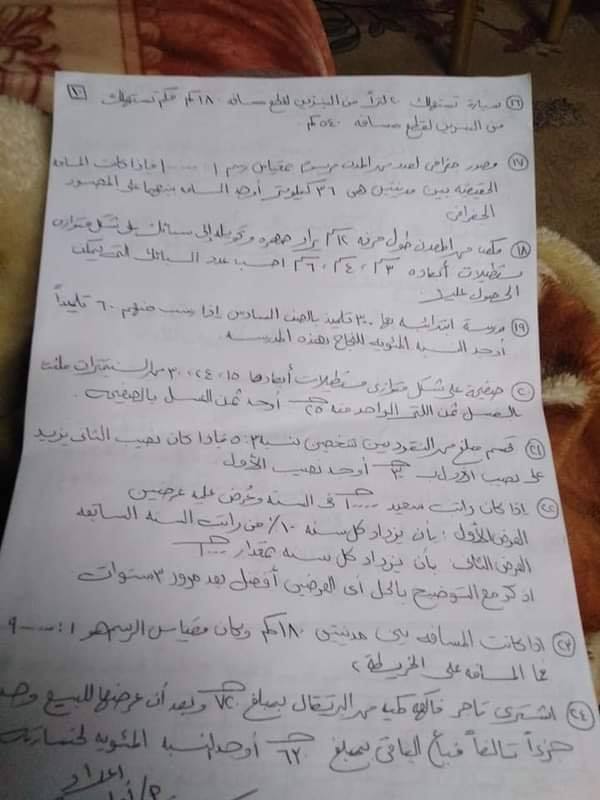 ١٠
١٦ سيارة تستهلك ٢٠ لتراً من البنزين لقطع مسافة ١٨٠ كم فكم تستهلك
من البنزين لقطع مسافة ٥٤٠ كم
١٧ مصور جغرافى لعدد من المدن مرسوم بمقياس رسم ١ : فإذا كانت المسافة
الحقيقية بين مدينتين هى ٣٦ كيلومتر أوجد المسافة بينهما على المصور
الجغرافى
١٨ مكعب من المعدن طول حرفه ١٢ سم يراد صهره وتحويله إلى سبائك على شكل متوازى
مستطيلات أبعاده ٣ سم ، ٤ سم ، ٦ سم احسب عدد السبائك التى يمكن
الحصول عليها
١٩ مدرسة ابتدائية بها ٣٠٠ تلميذ بالصف السادس إذا رسب منهم ٦٠ تلميذاً
أوجد النسبة المئوية للنجاح بهذه المدرسة
٢٠ صفيحة على شكل متوازى مستطيلات أبعادها ١٥ ، ٢٤ ، ٣٠ من السنتيمترات ملئت
بالعسل ثمن اللتر الواحد منه ٢٥ جـ أوجد ثمن العسل بالصفيحة .
٢١ قسم مبلغ من النقود بين شخصين بنسبة ٣ : ٥ فإذا كان نصيب الثانى يزيد
على نصيب الأول جـ أوجد نصيب الأول
٢٢ إذا كان راتب سعيد جـ فى السنة وعُرض عليه عرضين
العرض الأول : بأن يزداد كل سنة ١٠٪ من راتب السنة السابقة
العرض الثانى : بأن يزداد كل سنة بمقدار جـ
اذكر مع التوضيح بالحل أى العرضين أفضل بعد مرور ٣ سنوات
٢٣ إذا كانت المسافة بين مدينتين ١٨٠ كم وكان مقياس الرسم هو ١ :
فما المسافة على الخريطة ؟
٢٤ اشترى تاجر فاكهة كمية من البرتقال بمبلغ ٧٢٠ جـ وبعد أن عرضها للبيع وجد
جزءاً تالفاً فباع الباقى بمبلغ ٦٢٠ جـ أوجد النسبة المئوية لخسارته
إعداد